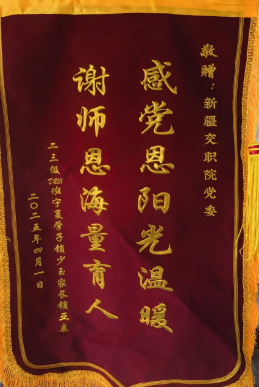 敬赠：新疆交职院党委
感党恩阳光温暖
谢师恩海量育人
二三级 班宁夏学子锁少玉家长锁正泰
二〇二五年四月一日